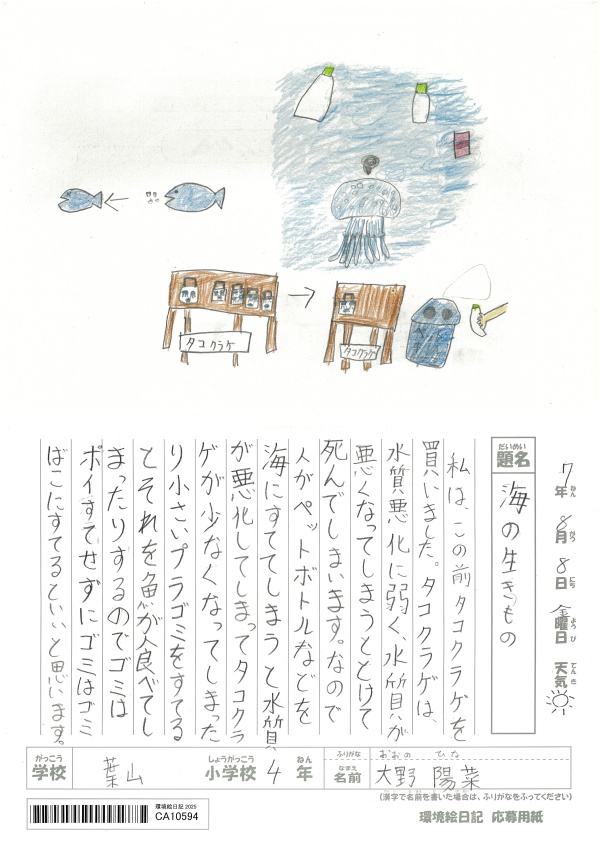 タコクラゲ
タコクラゲ
7年ねん 8月がつ 8日にち 金曜日ようび 天気てんき
だいめい
題名
海の生きもの
私は、この前タコクラゲを
買いました。タコクラゲは、
水質悪化に弱く、水質が
悪くなってしまうととけて
死んでしまいます。なので
人がペットボトルなどを
海にすててしまうと水質
が悪化してしまってタコクラ
ゲが少なくなってしまった
り小さいプラゴミをすてる
とそれを魚が食べてし
まったりするのでゴミは
ポイすてせずにゴミはゴミ
ばこにすてるといいと思います。
がっこう
学校
葉山
しょうがっこう
小学校
4
ねん
年
ふりがな
おおの ひな
なまえ
名前
大野 陽菜
(漢字で名前を書いた場合は、ふりがなをふってください)
環境絵日記 2025
CA10594
環境絵日記 応募用紙